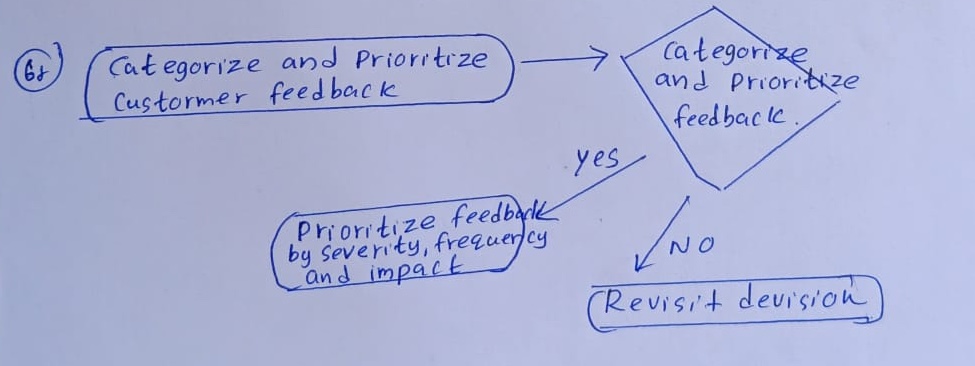 Categorize and Prioritize
Custormer feedback
Categorize
and Prioritize
feedback.
yes
Prioritize feedback
by severity, frequency
and impact
NO
Revisit devision